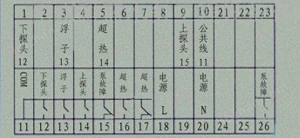 1 2 3 4 5 6 7 8 9 10 21 22 23
下探头 12
浮子 13
超热 14
上探头 15
公共线 11
COM
下探头 12
浮子 13
上探头 14
泵故障
超热
超热
电源 L
电源 N
泵故障
11 12 13 14 15 16 17 18 19 20 24 25 26